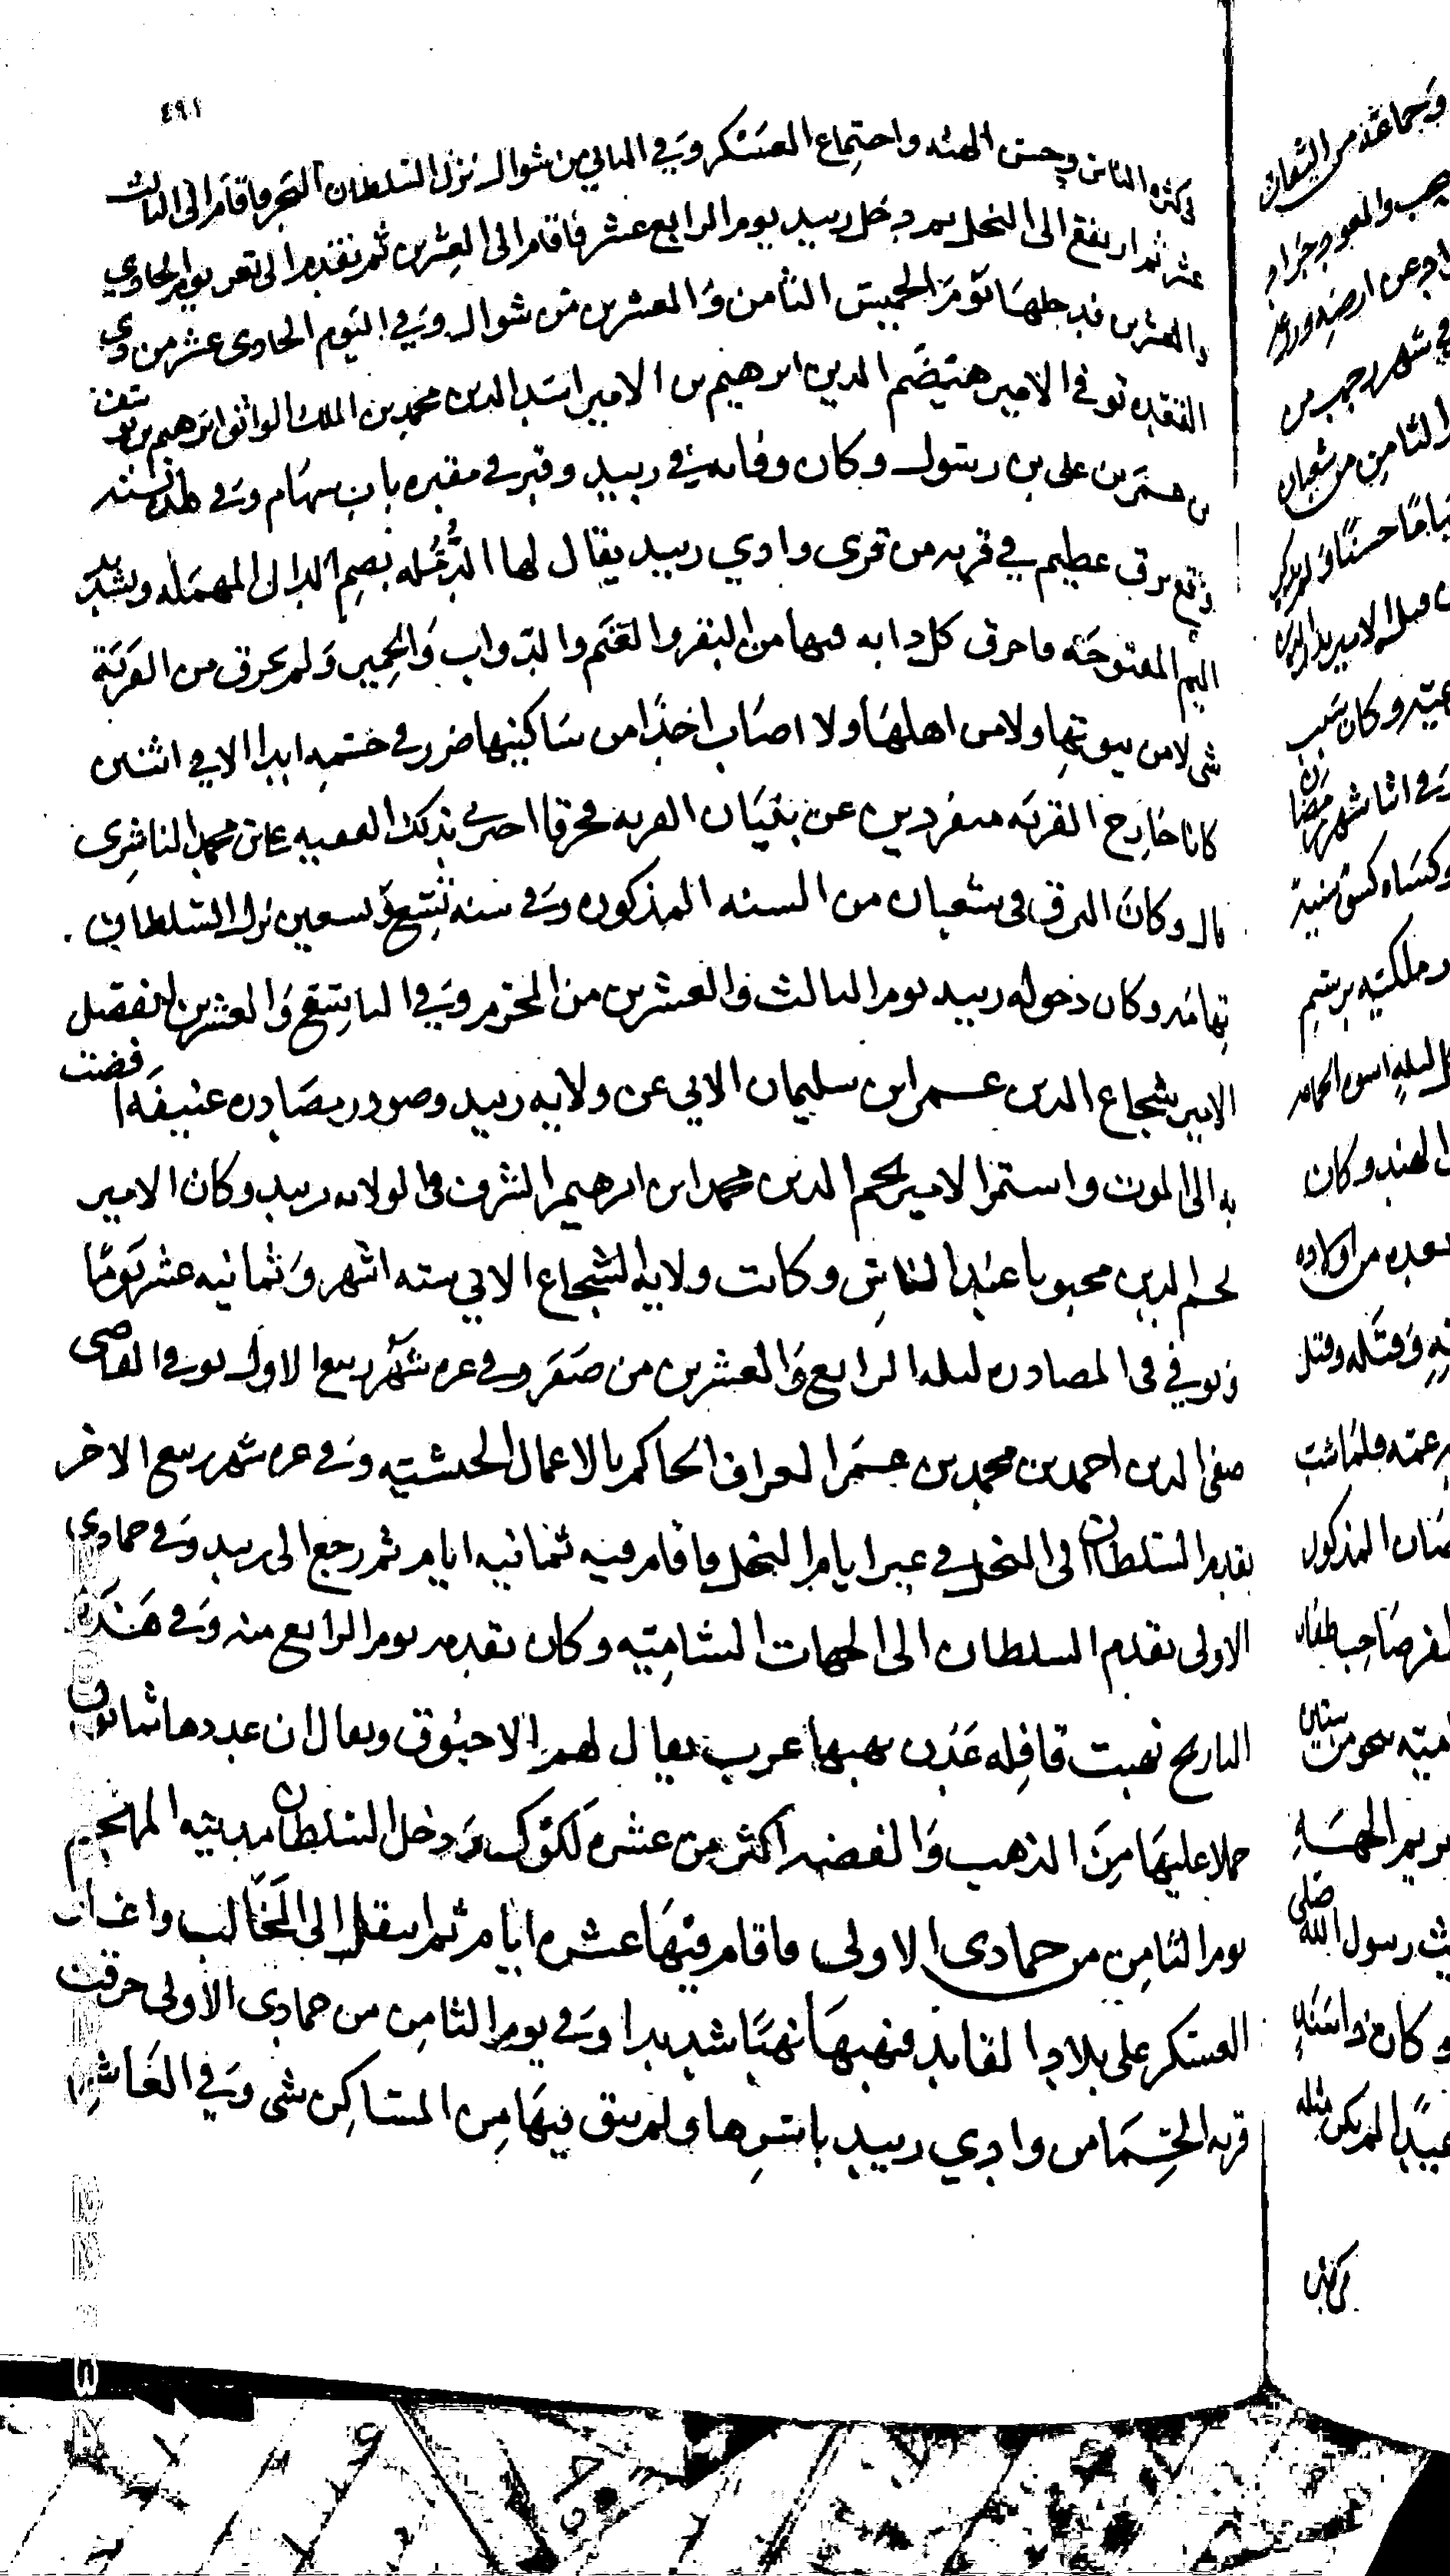 ٤٩١
لكثرة الناس وحسن الهيئه واجتماع العسكر وفي الثاني من شوال نزل السلطان البحر فاقام الى الثالث
عشر ثم ارتفع الى النخل ثم دخل زبيد يوم الرابع عشر فاقام الى العشرين ثم تقدم الى تعز يوم الحادي
والعشرين فدخلها يوم الخميس الثامن والعشرين من شوال وفي اليوم الحادى عشر من ذي
القعده توفي الامير هتيضم الدين ابرهيم بن الامير اسد الدين محمد بن الملك الواثق ابرهيم بن يوسف
بن عمر بن على بن رسول وكان وفاته في زبيد وقبر في مقبره باب سهام وفي هذه السنه
وقع برق عظيم في قريه من قرى وادي زبيد يقال لها الدُّمَّله بضم الدال المهمله وتشديد
الميم المفتوحه فاحرق كل دابه فيها من البقر والغنم والدواب والحمير ولم يحرق من القرية
شي لا من بيوتها ولا من اهلها ولا اصاب احدًا من ساكنيها ضرر في جسمه ابدا الا في اثنين
كانا خارج القريه منفردين عن بنيان القريه فحرقا اخبرني بذلك الفقيه على بن محمد الناشرى
قال وكان البرق فى شعبان من السنه المذكوره وفي سنه تسع وتسعين نزل السلطان
تهامه وكان دخوله زبيد يوم الثالث والعشرين من المحرم وفي التاسع والعشرين انفصل
الامير شجاع الدين عمر ابن سليمان الابي عن ولايه زبيد وصودر مصادره عنيفه افضت
به الى الموت واستمر الامير نجم الدين محمد ابن ابرهيم الشرف في الولايه زبيد وكان الامير
نجم الدين محبوبا عند الناس وكانت ولايه الشجاع الابي سته اشهر وثمانيه عشر يومًا
وتوفي في المصادره ليله الرابع والعشرين من صفر وفي غره شهر ربيع الاول توفي القاضى
صفى الدين احمد بن محمد بن عمر العراف الحاكم بالاعمال الحيسيه وفي غره شهر ربيع الاخر
تقدم السلطان الى النخل في غير ايام النخل فاقام فيه ثمانيه ايام ثم رجع الى زبيد وفي جمادى
الاولى تقدم السلطان الى الجهات الشاميه وكان تقدمه يوم الرابع منه وفي هذا
التاريخ نهبت قافله عدن نهبها عرب يقال لهم الاحيوق ويقال ان عددها ثمانون
حملا عليها من الذهب والفضه اكثر من عشره لكوك ودخل السلطان مدينه المهجم
يوم الثامن من جمادى الاولى فاقام فيها عشره ايام ثم انتقل الى المخالب واغار
العسكر على بلاد القايد فنهبها نهبًا شديدا وفي يوم الثامن من جمادى الاولى حرقت
قريه من وادي زبيد باسرها ولم يبق فيها من المساكن شى وفي العاشر
وجماعة من
في شهر رجب من
الثامن من شعبان
وكان سبب
وفي اثنا شهر رمضان
الهند وكان
بعده من اولاده
وقتله وقتل
المذكور
رسول الله صلى
لم يكن مثله